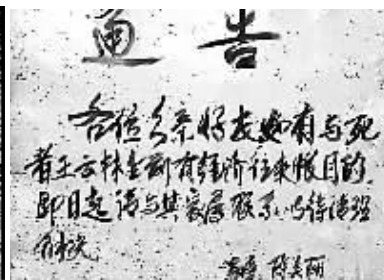 通告
各位乡亲好友如有与死
者王云林生前有经济往来帐目的
即日起请与其家属联系,以待清理
解决
家属 陈美丽